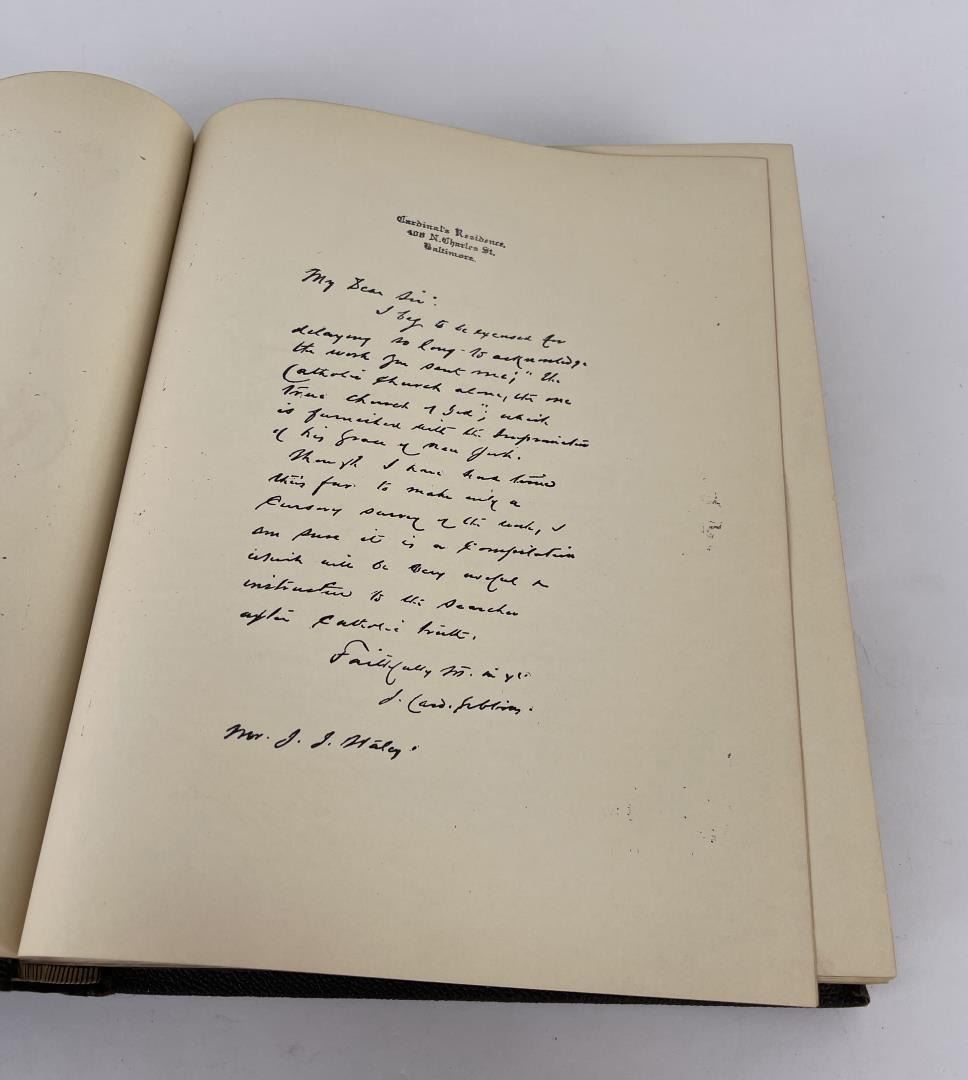 Cardinal's Residence,
408 N. Charles St.
Baltimore.
My Dear Sir:
I beg to be excused for
delaying so long to acknowledge
the work you sent me; "The
Catholic Church alone, the one
true Church of God", which
is furnished with the Imprimatur
of his Grace of New York.
Though I have had time
thus far to make only a
cursory survey of the work, I
am sure it is a compilation
which will be very useful &
instructive to the searcher
after Catholic truth.
Faithfully yrs. in
J. Card. Gibbons.
Mr. J. J.